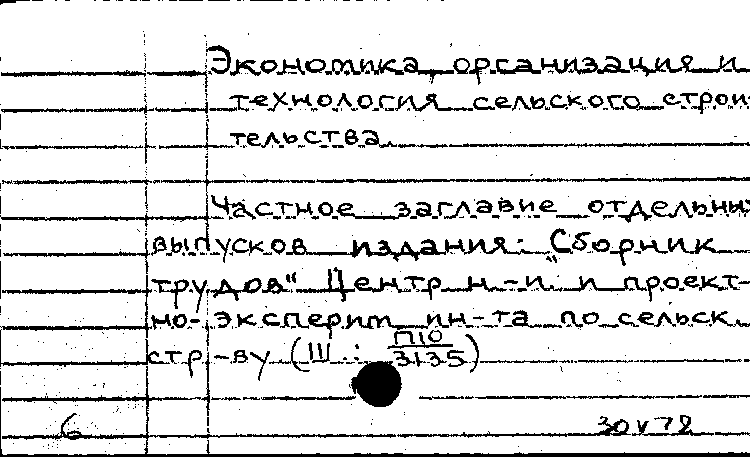 Экономика, организация и
технология сельского строи
тельства.
Частное заглавие отдельны
выпусков издания: „Сборник
трудов" Центр. н.-и. и проект-
но-эксперим. ин-та по сельск.
стр-ву (Ш : П10/3135)
6 30 V 72